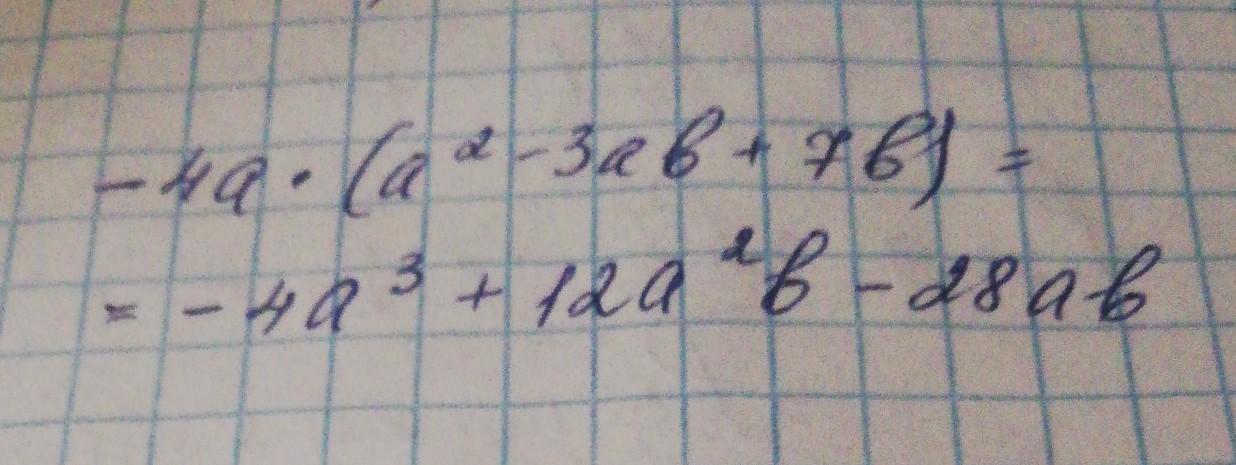 -4a·(a²-3ab+7b)=
=-4a³+12a²b-28ab